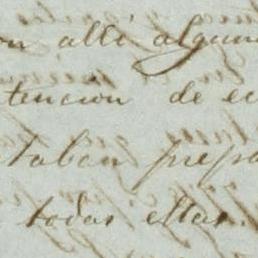 on alli algun
tencion de ec
taban prepa
todas ellas.